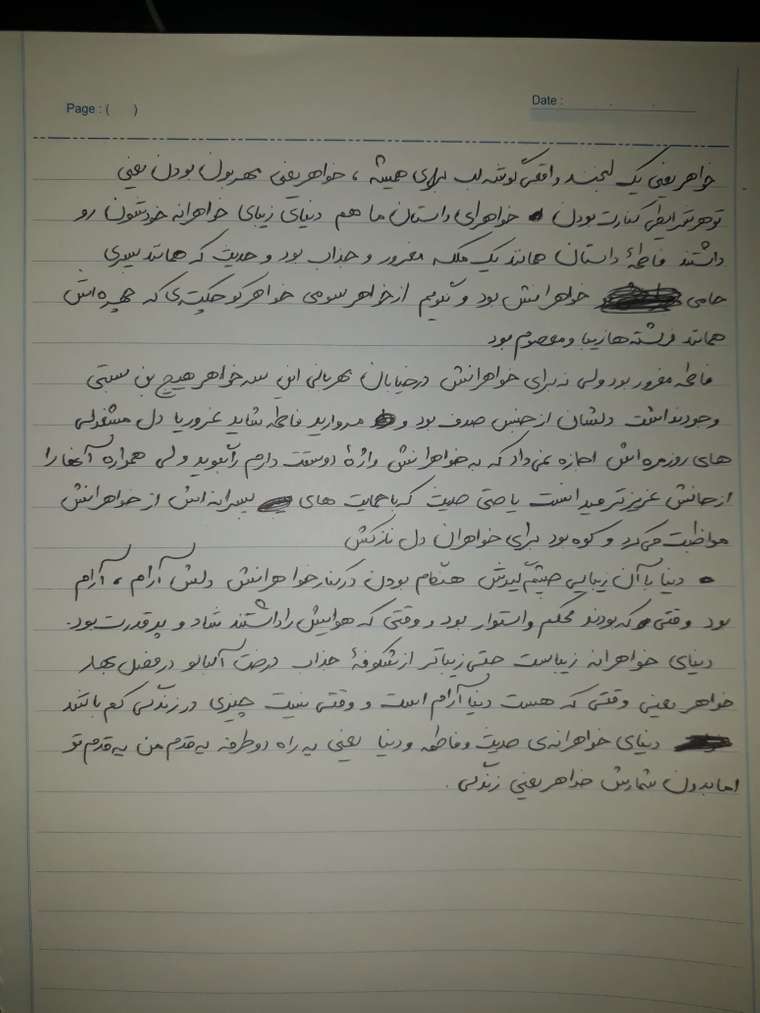 Page : (      )
Date :      .      .
خواهر یعنی یک لبخند واقعی گوشه لب برای همیشه ، خواهر یعنی مهربون بودن یعنی
تو هر شرایطی کنارت بودن خواهرای داستان ما هم دنیای زیبای خواهرانه خودشون رو
داشتند فاطمهٔ داستان همانند یک ملکه مغرور و جذاب بود و حدیث که همانند پسری
حامی خواهرانش بود و بگویم از خواهر سومی خواهر کوچیکتری که چهره‌اش
همانند فرشته‌ها زیبا و معصوم بود
فاطمه مغرور بود ولی نه برای خواهرانش در خیابان مهربانی این سه خواهر هیچ بن بستی
وجود نداشت دلشان از جنس صدف بود و مروارید فاطمه شاید غرور یا دل مشغولی
های روزمره‌اش اجازه نمی‌داد که به خواهرانش واژهٔ دوستت دارم را بگوید ولی همواره آنها را
از جانش عزیزتر میدانست یا حتی حدیث که با حمایت های پسرانه‌اش از خواهرانش
مواظبت می‌کرد و کوه بود برای خواهران دل نازکش
دنیا با آن زیبایی چشم‌گیرش هنگام بودن در کنار خواهرانش دلش آرام ، آرام
بود وقتی که بودند محکم و استوار بود و وقتی که هوایش را داشتند شاد و پر قدرت بود.
دنیای خواهرانه زیباست حتی زیباتر از شکوفهٔ جذاب درخت آلبالو در فصل بهار
خواهر یعنی وقتی که هست دنیا آرام است و وقتی نیست چیزی در زندگی کم باشد
دنیای خواهرانه‌ی حدیث و فاطمه و دنیا یعنی یه راه دو طرفه یه قدم من یه قدم تو
اما بدون شمارش خواهر یعنی زندگی .